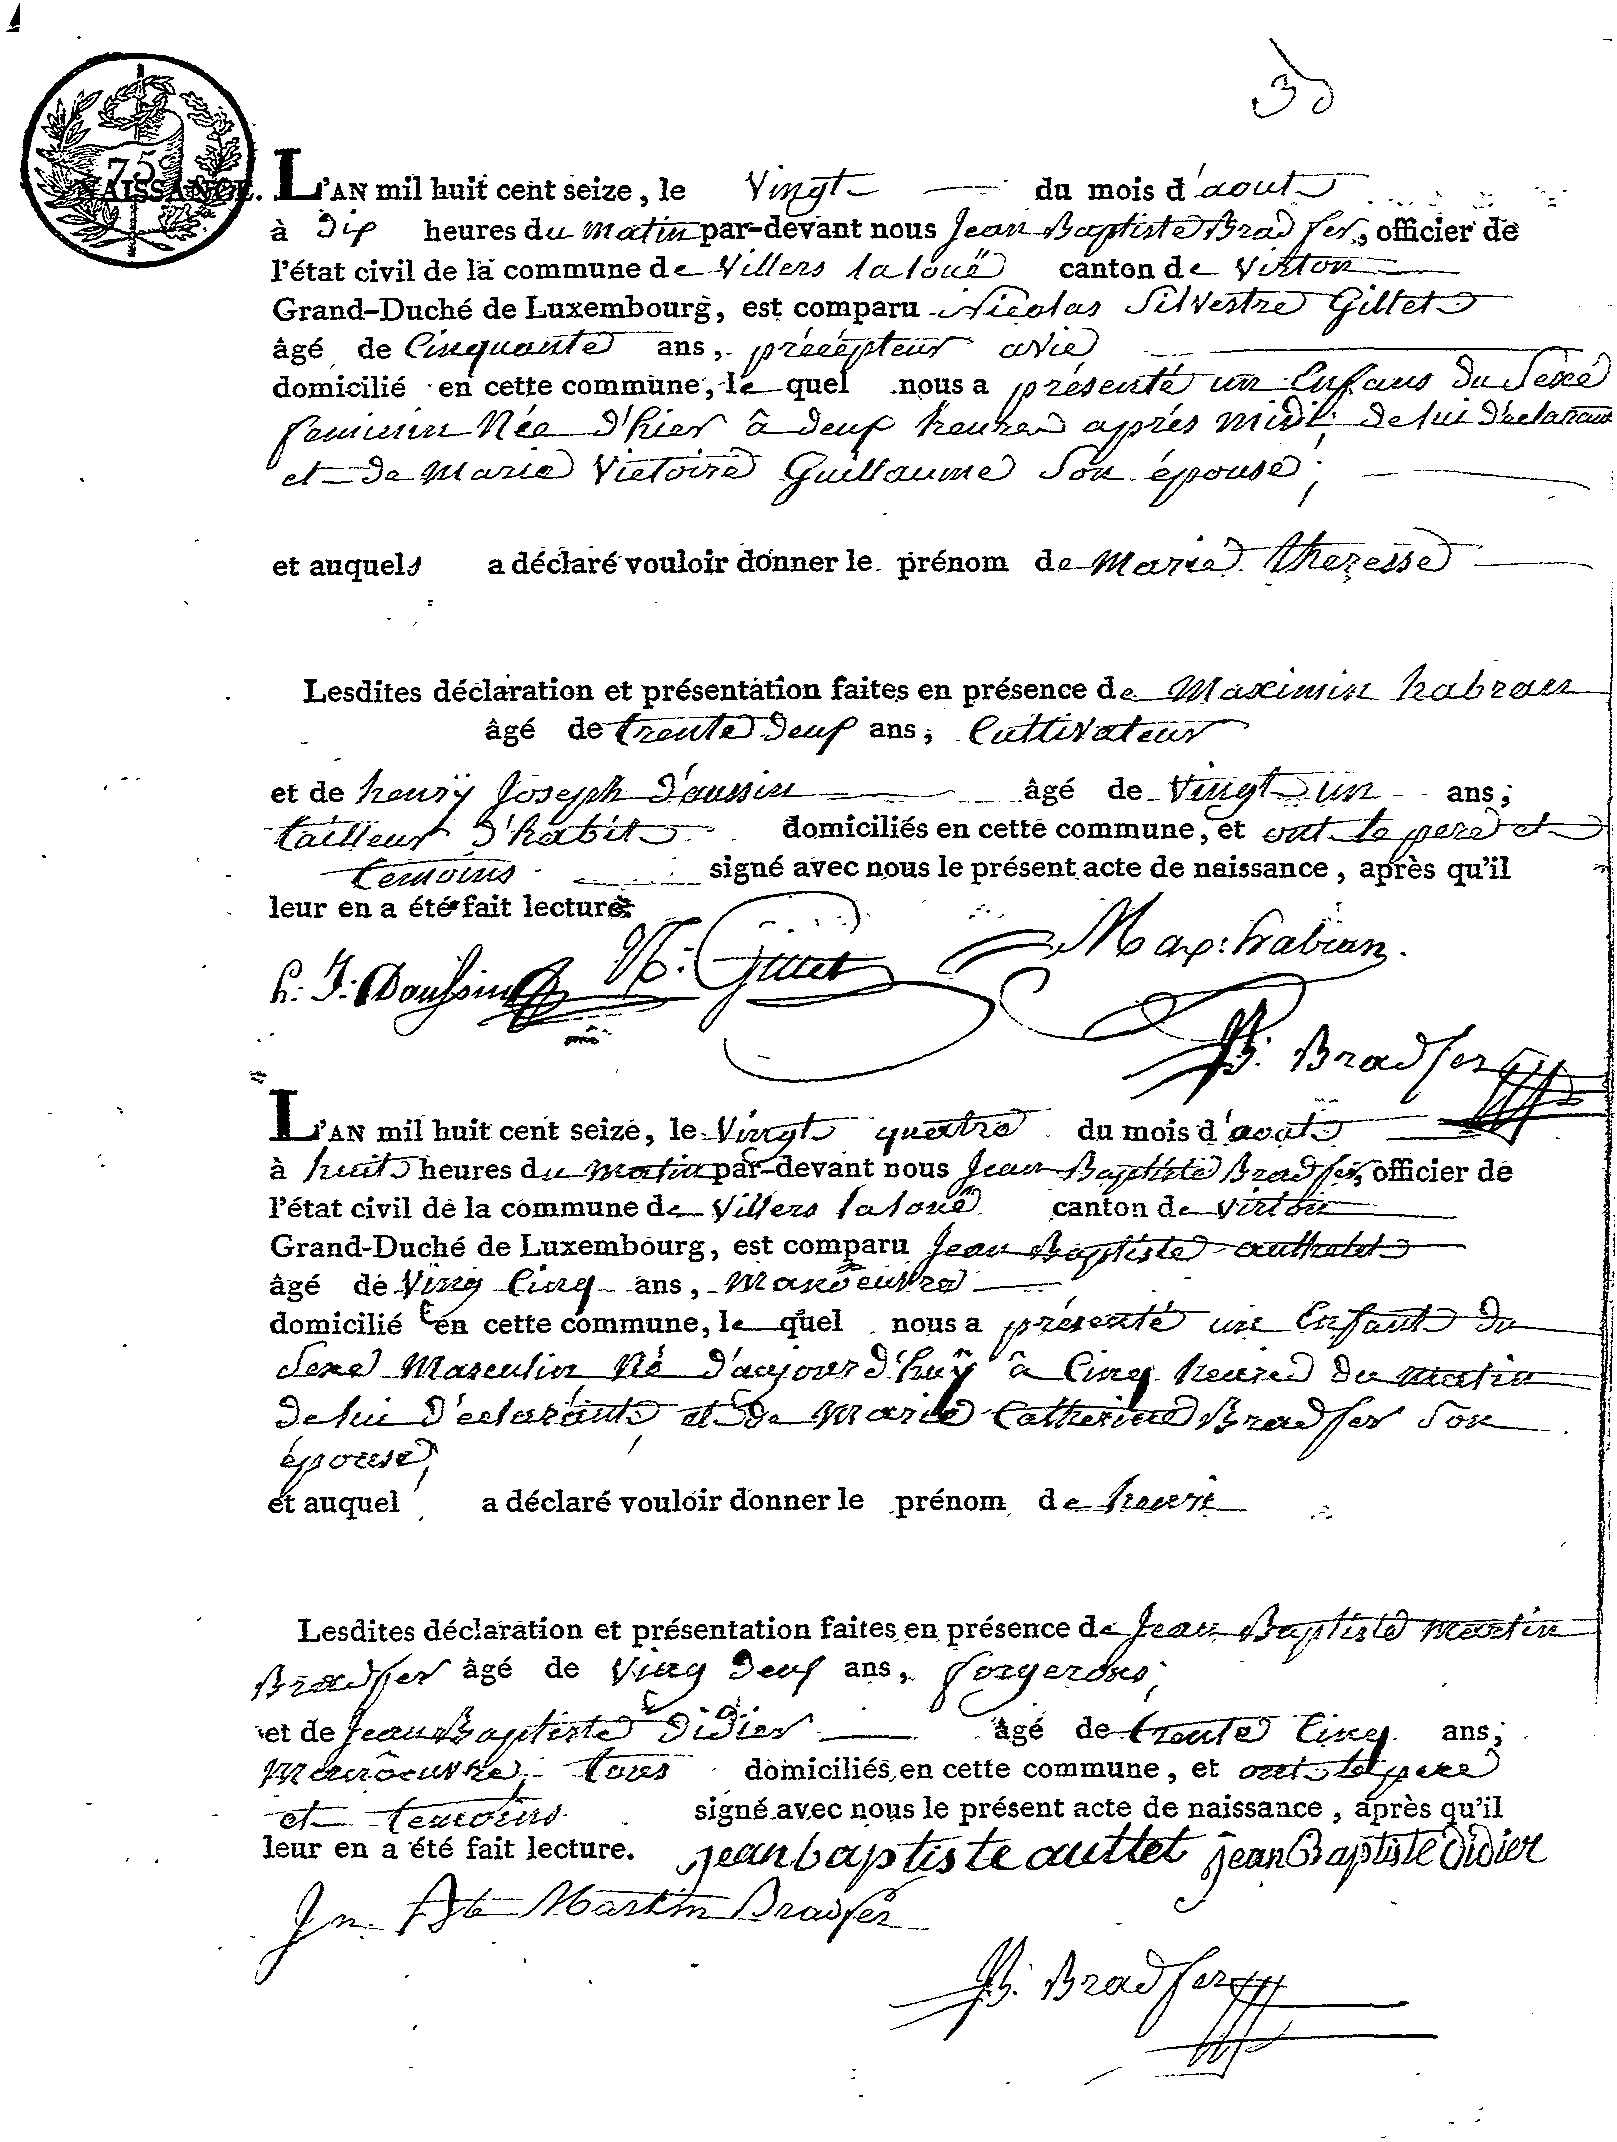 75
NAISSANCE. L'AN mil huit cent seize, le Vingt du mois d'aout
à Dix heures du Matin par-devant nous Jean Baptiste Bradfer, officier de
l'état civil de la commune de Villers laloué canton de Virton
Grand-Duché de Luxembourg, est comparu Nicolas Silvestre Gillet
âgé de Cinquante ans, précépteur
domicilié en cette commune, le quel nous a présenté un Enfans du Sexe
feminin Née d'hier â deux heures aprés midi; de lui déclarant
et de Marie Victoire Guillaume Son épouse;
et auquels a déclaré vouloir donner le prénom de Marie theresse
Lesdites déclaration et présentation faites en présence de Maximin habran
âgé de trente Deux ans, Cultivateur
et de henrÿ Joseph d'aussin âgé de Vingt un ans;
tailleur d'habit domiciliés en cette commune, et ont le pere et
temoins signé avec nous le présent acte de naissance, après qu'il
leur en a été fait lecture.
h: J: Daussin N: Gillet Max: habran.
JB: Bradfer
L'AN mil huit cent seize, le Vingt quatre du mois d'aout
à huit heures du matin par-devant nous Jean Baptiste Bradfer, officier de
l'état civil de la commune de Villers laloué canton de Virton
Grand-Duché de Luxembourg, est comparu Jean Baptiste
âgé de Ving Cinq ans, Manoeuvre
domicilié en cette commune, le quel nous a présenté un Enfant du
Sexe Masculin Né d'aujourd'huÿ â Cinq heures du matin
de lui déclarant, et de Marie Catherine Bradfer Son
épouse,
et auquel a déclaré vouloir donner le prénom de henri
Lesdites déclaration et présentation faites en présence de Jean Baptiste Martin
Bradfer âgé de Ving Deux ans, forgerons;
et de Jean Baptiste Didier âgé de trente Cinq ans;
Manôeuvre, tous domiciliés en cette commune, et ont le pere
et temoins signé avec nous le présent acte de naissance, après qu'il
leur en a été fait lecture. jean baptiste auttet jean Baptiste Didier
Jn Bte Martin Bradfer
JB. Bradfer